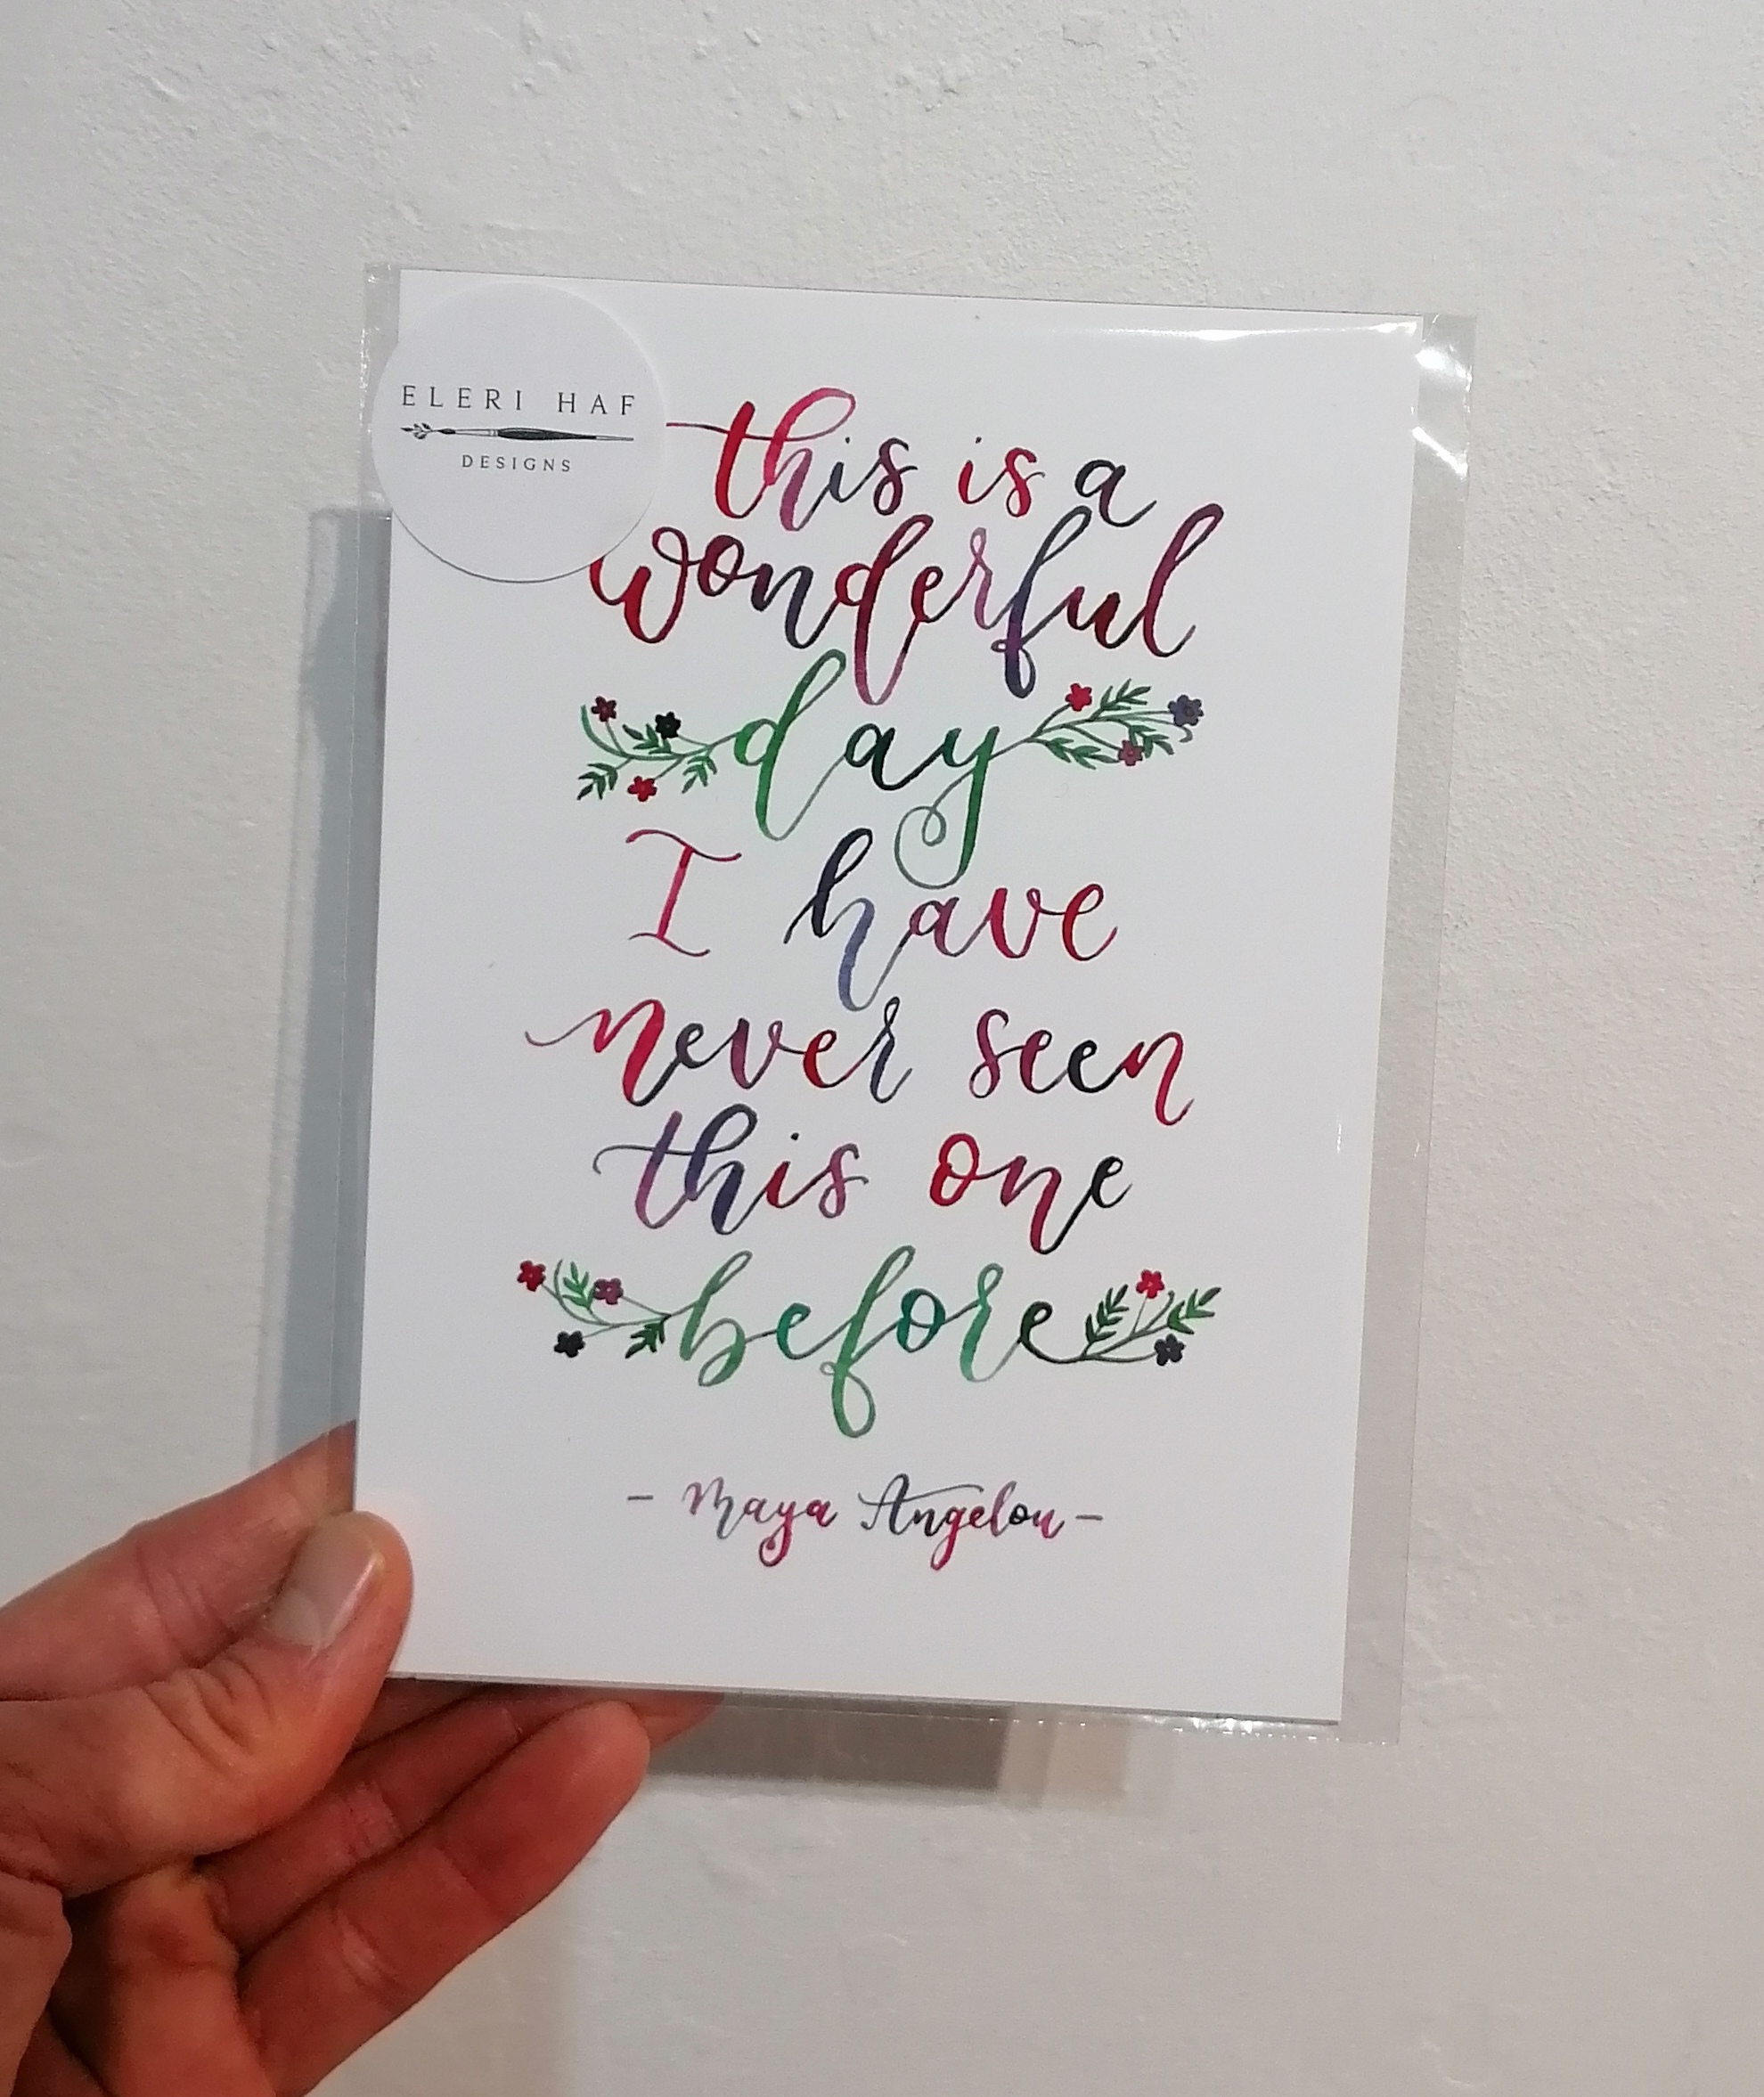 ELERI HAF
DESIGNS
this is a
wonderful
day
I have
never seen
this one
before
- Maya Angelou -